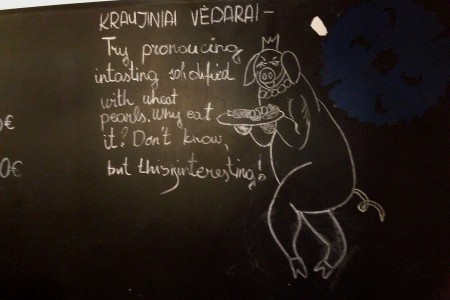 KRAUJINIAI VĖDARAI -
Try pronoucing
intasting solidified
with wheat
pearls. Why eat
it? Don't know,
but this interesting!
€
0€